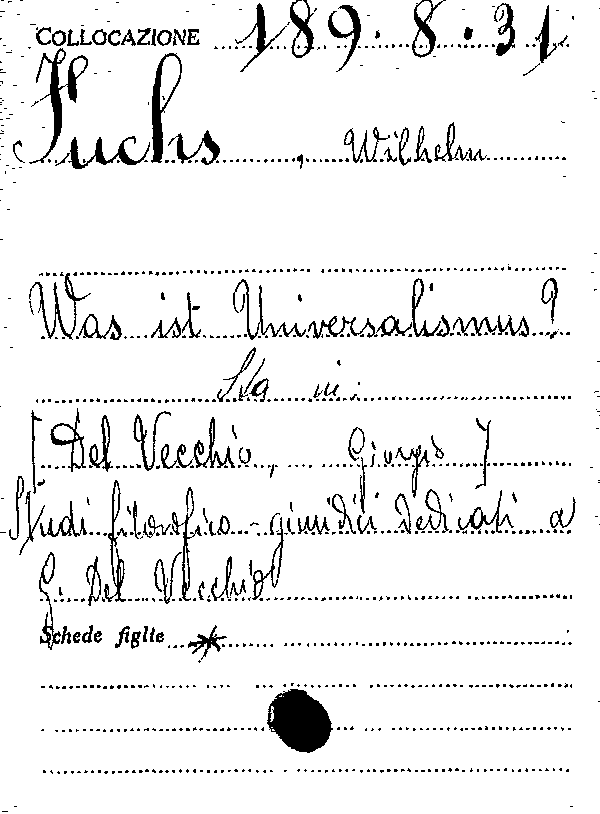 COLLOCAZIONE 189.8.31
Fuchs, Wilhelm
Was ist Universalismus?
Sta in:
[Del Vecchio, Giorgio]
Studi filosofico-giuridici dedicati a
G. Del Vecchio
Schede figlie *